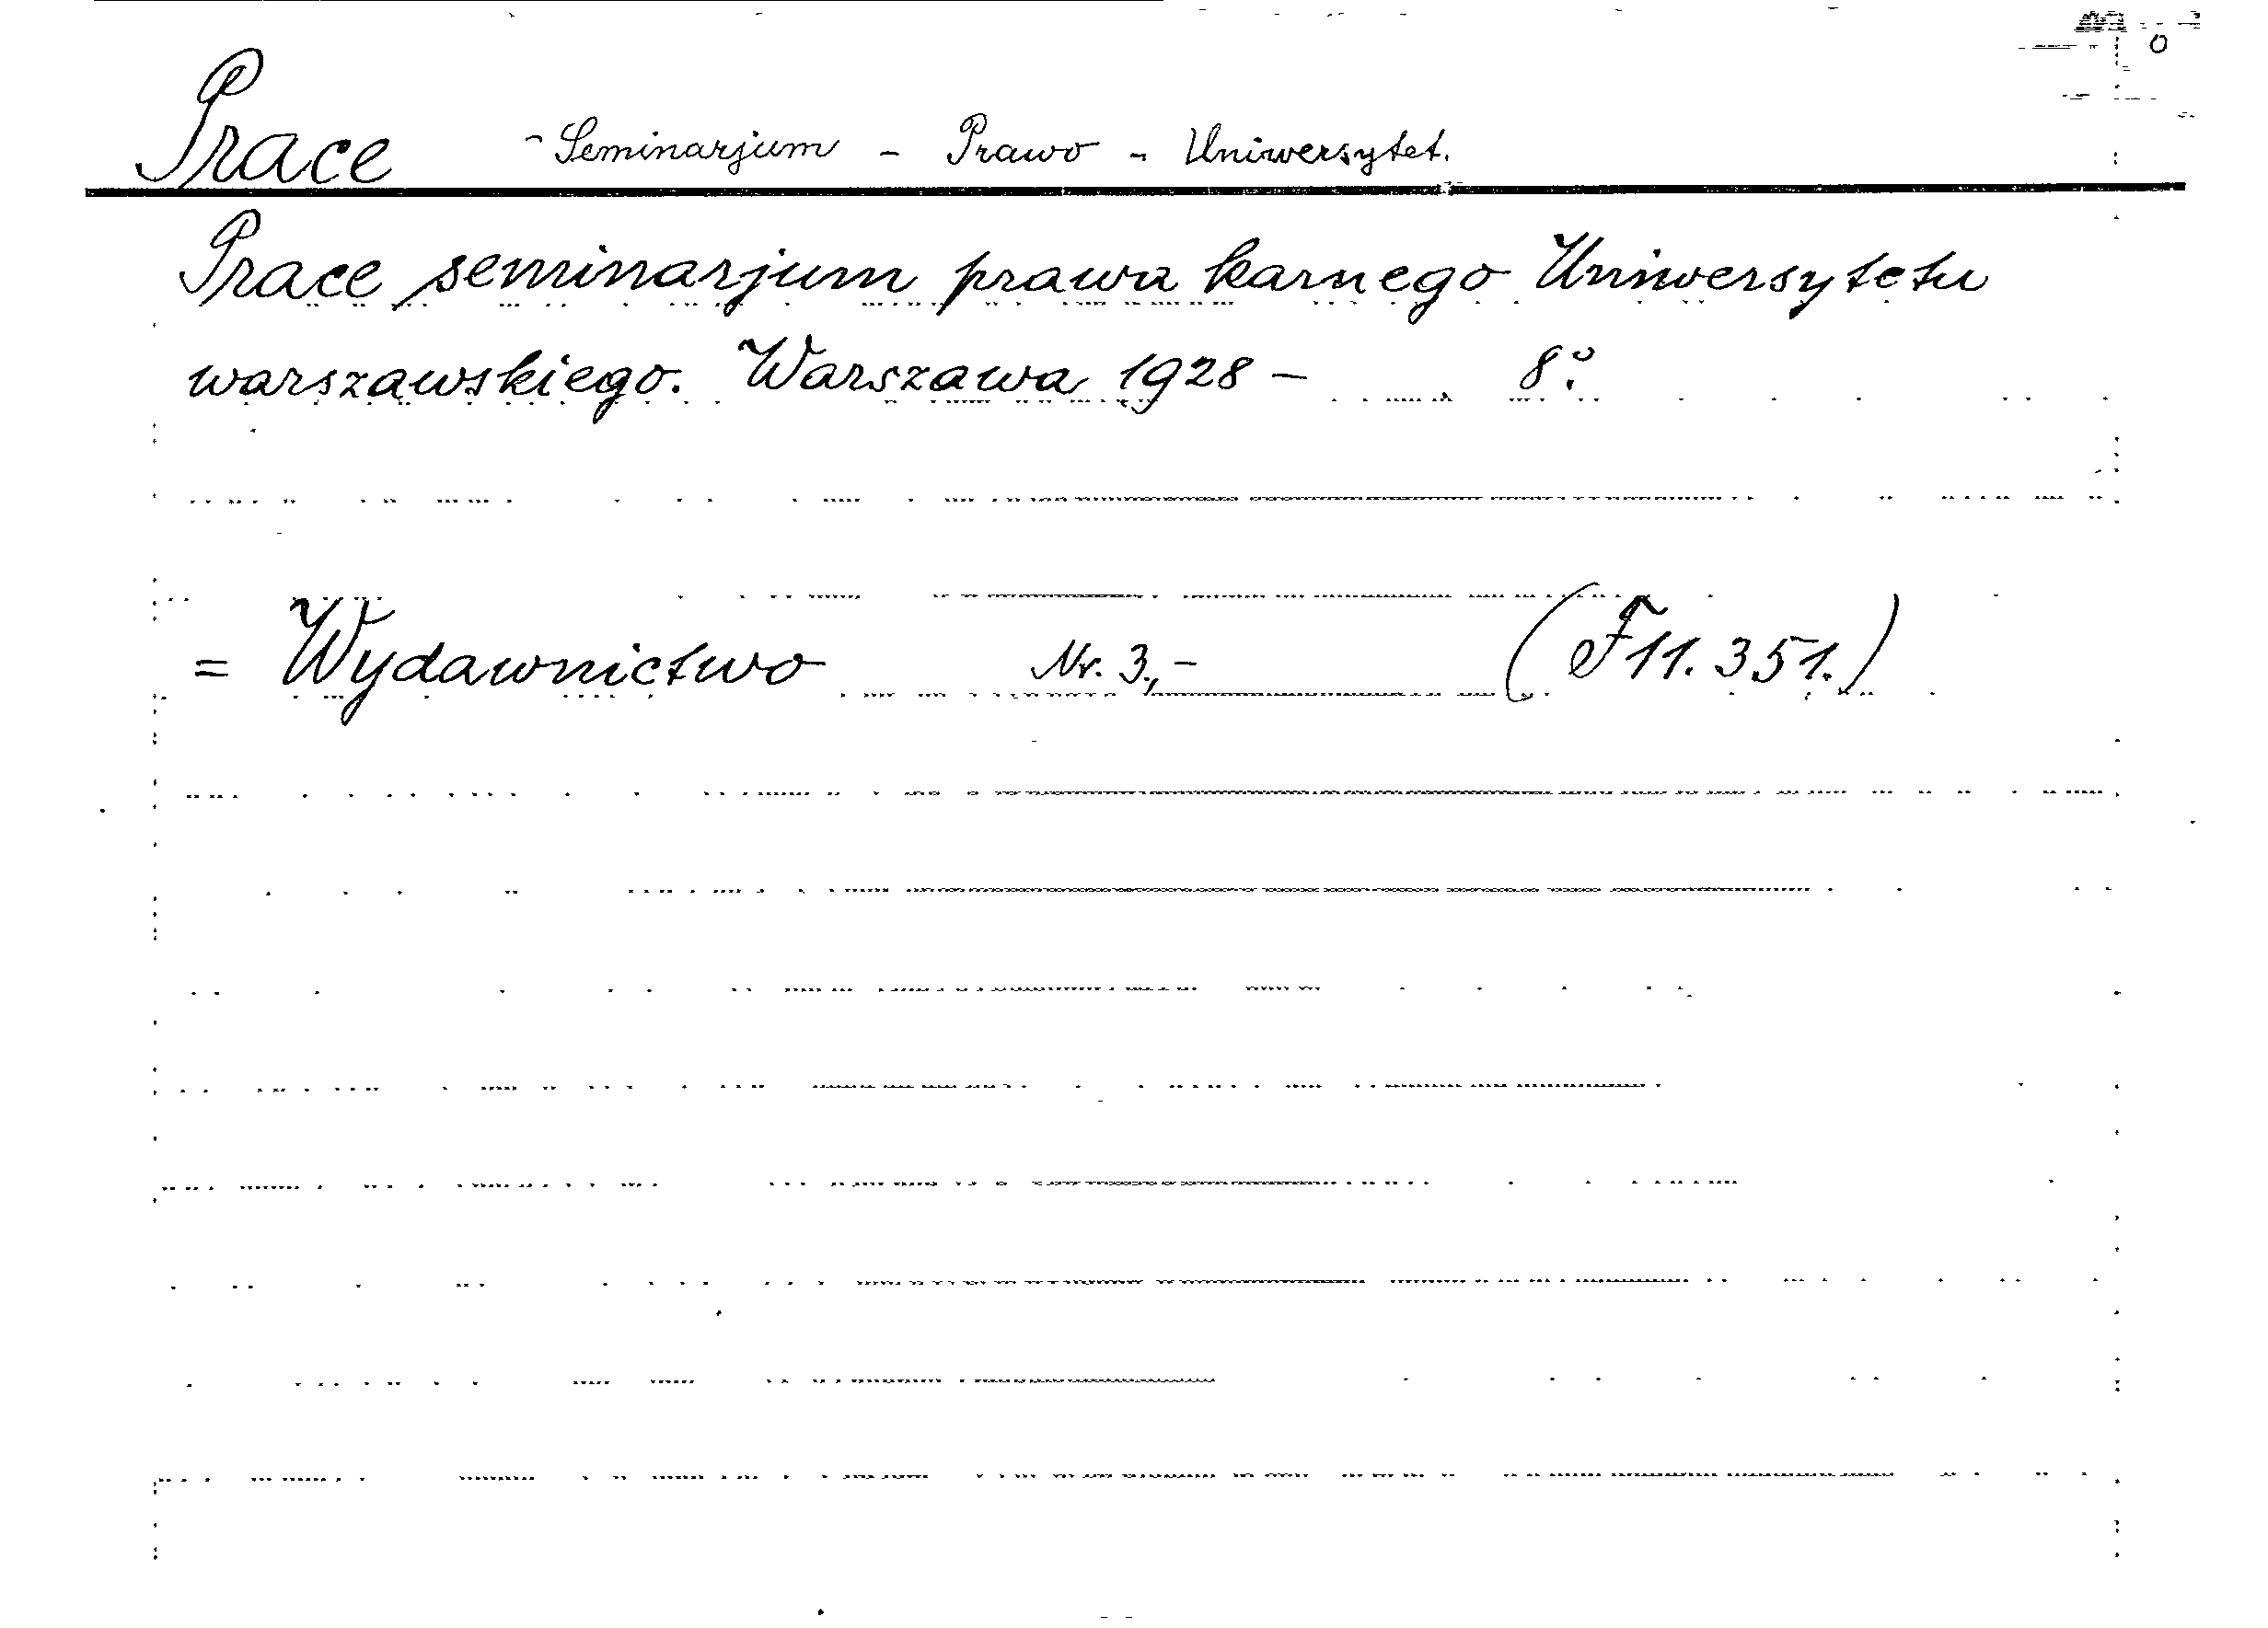 Prace - Seminarjum - Prawo - Uniwersytet.
Prace seminarjum prawa karnego Uniwersytetu
warszawskiego. Warszawa 1928 - 8º.
= Wydawnictwo Nr. 3,- (F 11.351.)